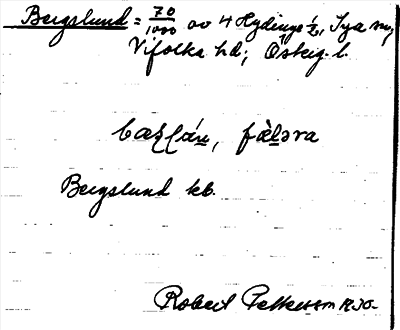 Bergslund = 70/1000 av 4 Hydinge ½, Sya sn,
Vifolka hd; Östergl. l.
fälǝra
Bergslund kb.
Robert Pettersson 1930